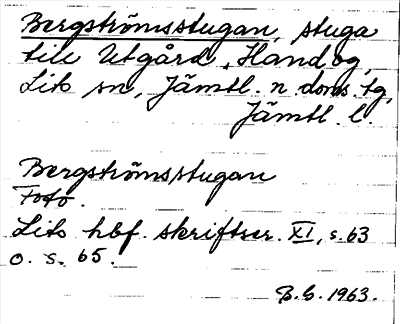 Bergströmsstugan, stuga
till Utgård, Handog,
Lits sn, Jämtl. n. doms. tg,
Jämtl. l.
Bergströmsstugan
Foto.
Lits hbf. skriftser. XI, s. 63
o. s. 65.
B.G. 1963.